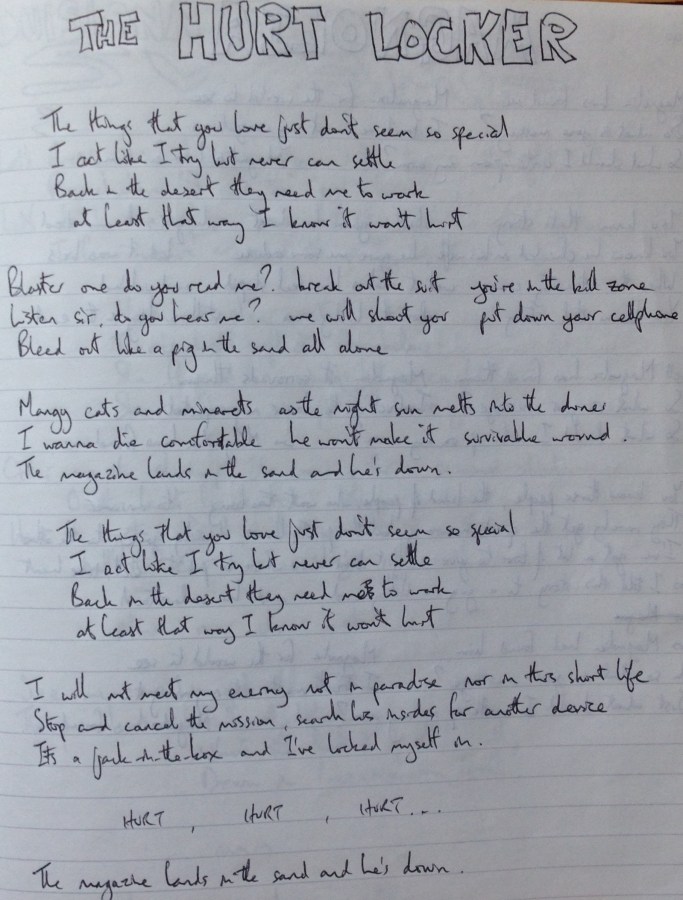 THE HURT LOCKER
The things that you love just don't seem so special
I act like I try but never can settle
Back in the desert they need me to work
at least that way I know it won't hurt
Blaster one do you read me? break out the suit you're in the kill zone
Listen sir, do you hear me? we will shoot you put down your cellphone
Bleed out like a pig in the sand all alone
Mangy cats and minarets as the night sun melts into the dunes
I wanna die comfortable he won't make it survivable wound.
The magazine lands in the sand and he's down.
The things that you love just don't seem so special
I act like I try but never can settle
Back in the desert they need me to work
at least that way I know it won't hurt
I will not meet my enemy not in paradise nor in this short life
Stop and cancel the mission, search his insides for another device
It's a jack-in-the-box and I've locked myself in.
HURT, HURT, HURT...
The magazine lands in the sand and he's down.